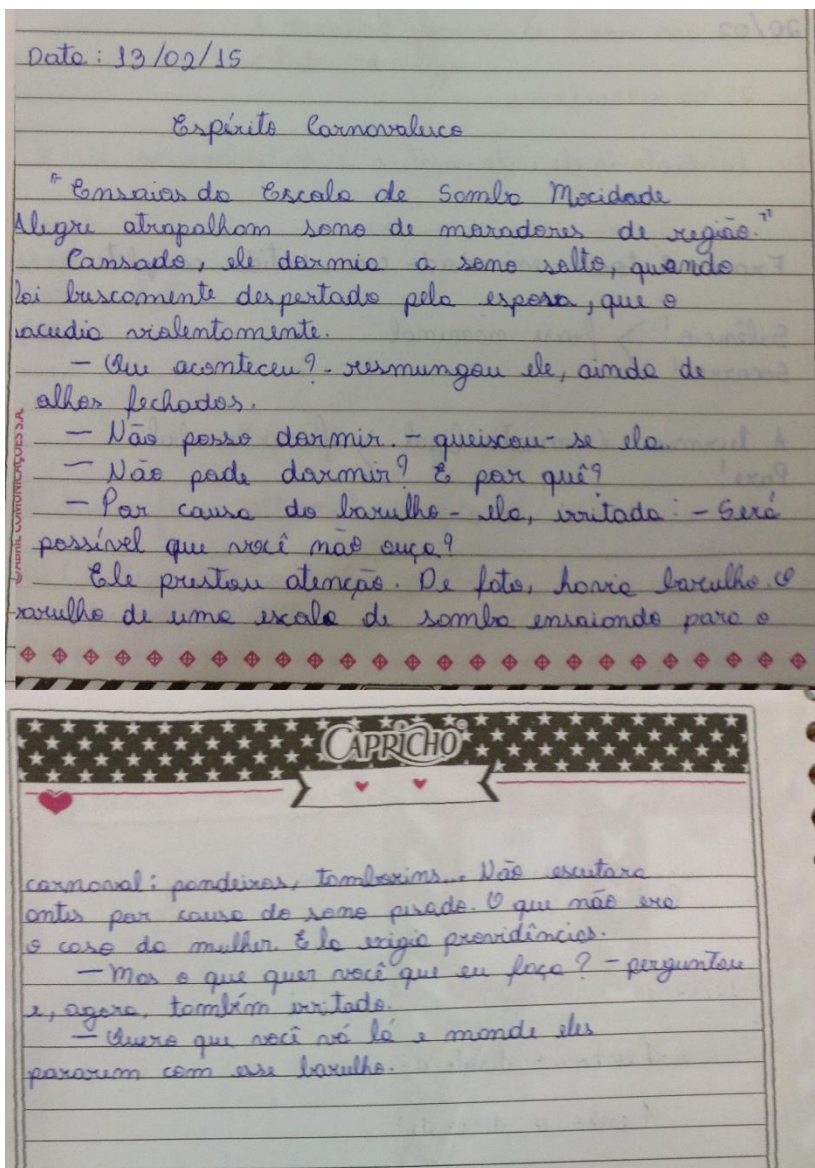 Data: 13/02/15
Espírito Carnavaluco
"Ensaios da Escola de Samba Mocidade
Alegre atrapalham sono de moradores de região."
Cansado, ele dormia a sono solto, quando
foi bruscamente despertado pela esposa, que o
sacudia violentamente.
— Que aconteceu? - resmungou ele, ainda de
olhos fechados.
— Não posso dormir. - queixou-se ela.
— Não pode dormir? E por quê?
— Por causa do barulho - ela, irritada: - Será
possível que você não ouça?
Ele prestou atenção. De fato, havia barulho. O
barulho de uma escola de samba ensaiando para o
© ABRIL COMUNICAÇÕES S.A.
CAPRICHO
carnaval: pandeiros, tamborins... Não escutara
antes por causa do sono pesado. O que não era
o caso da mulher. Ela exigia providências.
— Mas o que quer você que eu faça? - perguntou
e, agora, também irritado.
— Quero que você vá lá e mande eles
pararem com esse barulho.